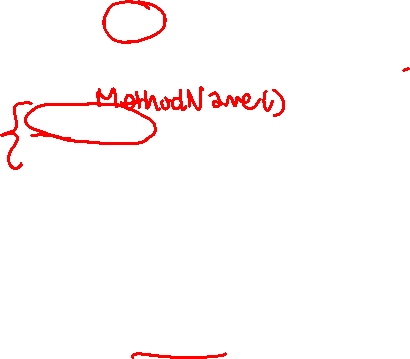 MethodName()
{